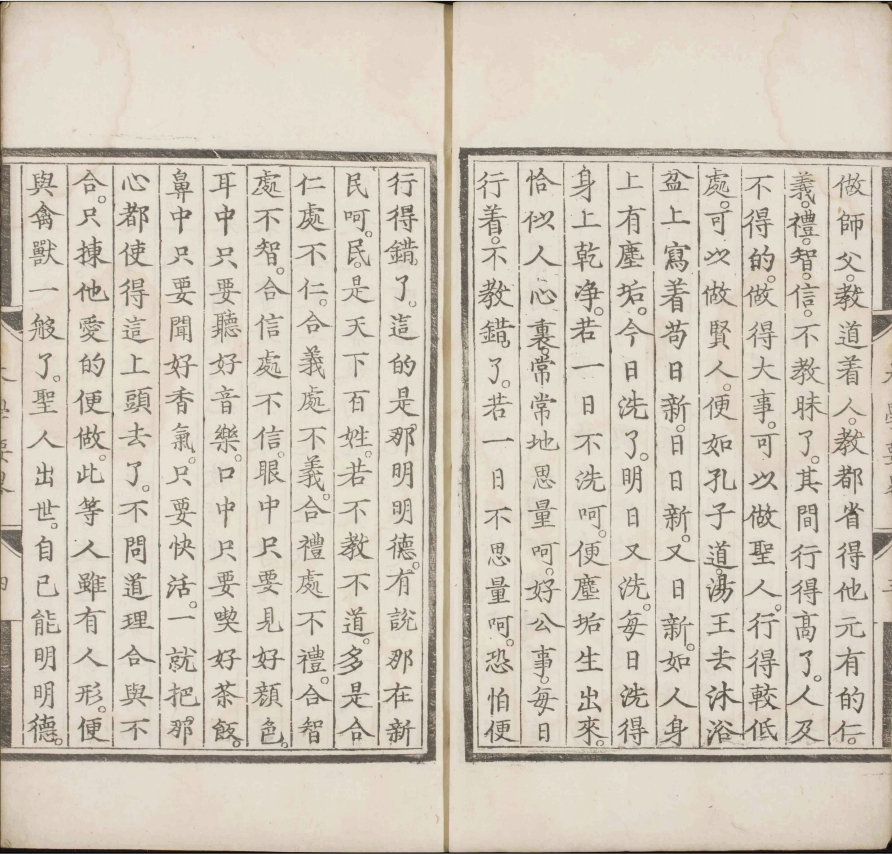 做師父。教道着人。教都省得他元有的仁。
義。禮。智。信。不教昧了。其間行得高了。人及
不得的。做得大事。可以做聖人。行得較低
處。可以做賢人。便如孔子道。湯王去沐浴
盆上寫着苟日新。日日新。又日新。如人身
上有塵垢。今日洗了。明日又洗。每日洗得
身上乾淨。若一日不洗呵。便塵垢生出來。
恰似人心裏常常地思量呵。好公事。每日
行着。不教錯了。若一日不思量呵。恐怕便
行得錯了。這的是那明明德。有說那在新
民呵。民。是天下百姓。若不教不道。多是合
仁處不仁。合義處不義。合禮處不禮。合智
處不智。合信處不信。眼中只要見好顏色。
耳中只要聽好音樂。口中只要喫好茶飯。
鼻中只要聞好香氣。只要快活。一就把那
心都使得這上頭去了。不問道理合與不
合。只揀他愛的便做。此等人雖有人形。便
與禽獸一般了。聖人出世。自己能明明德。